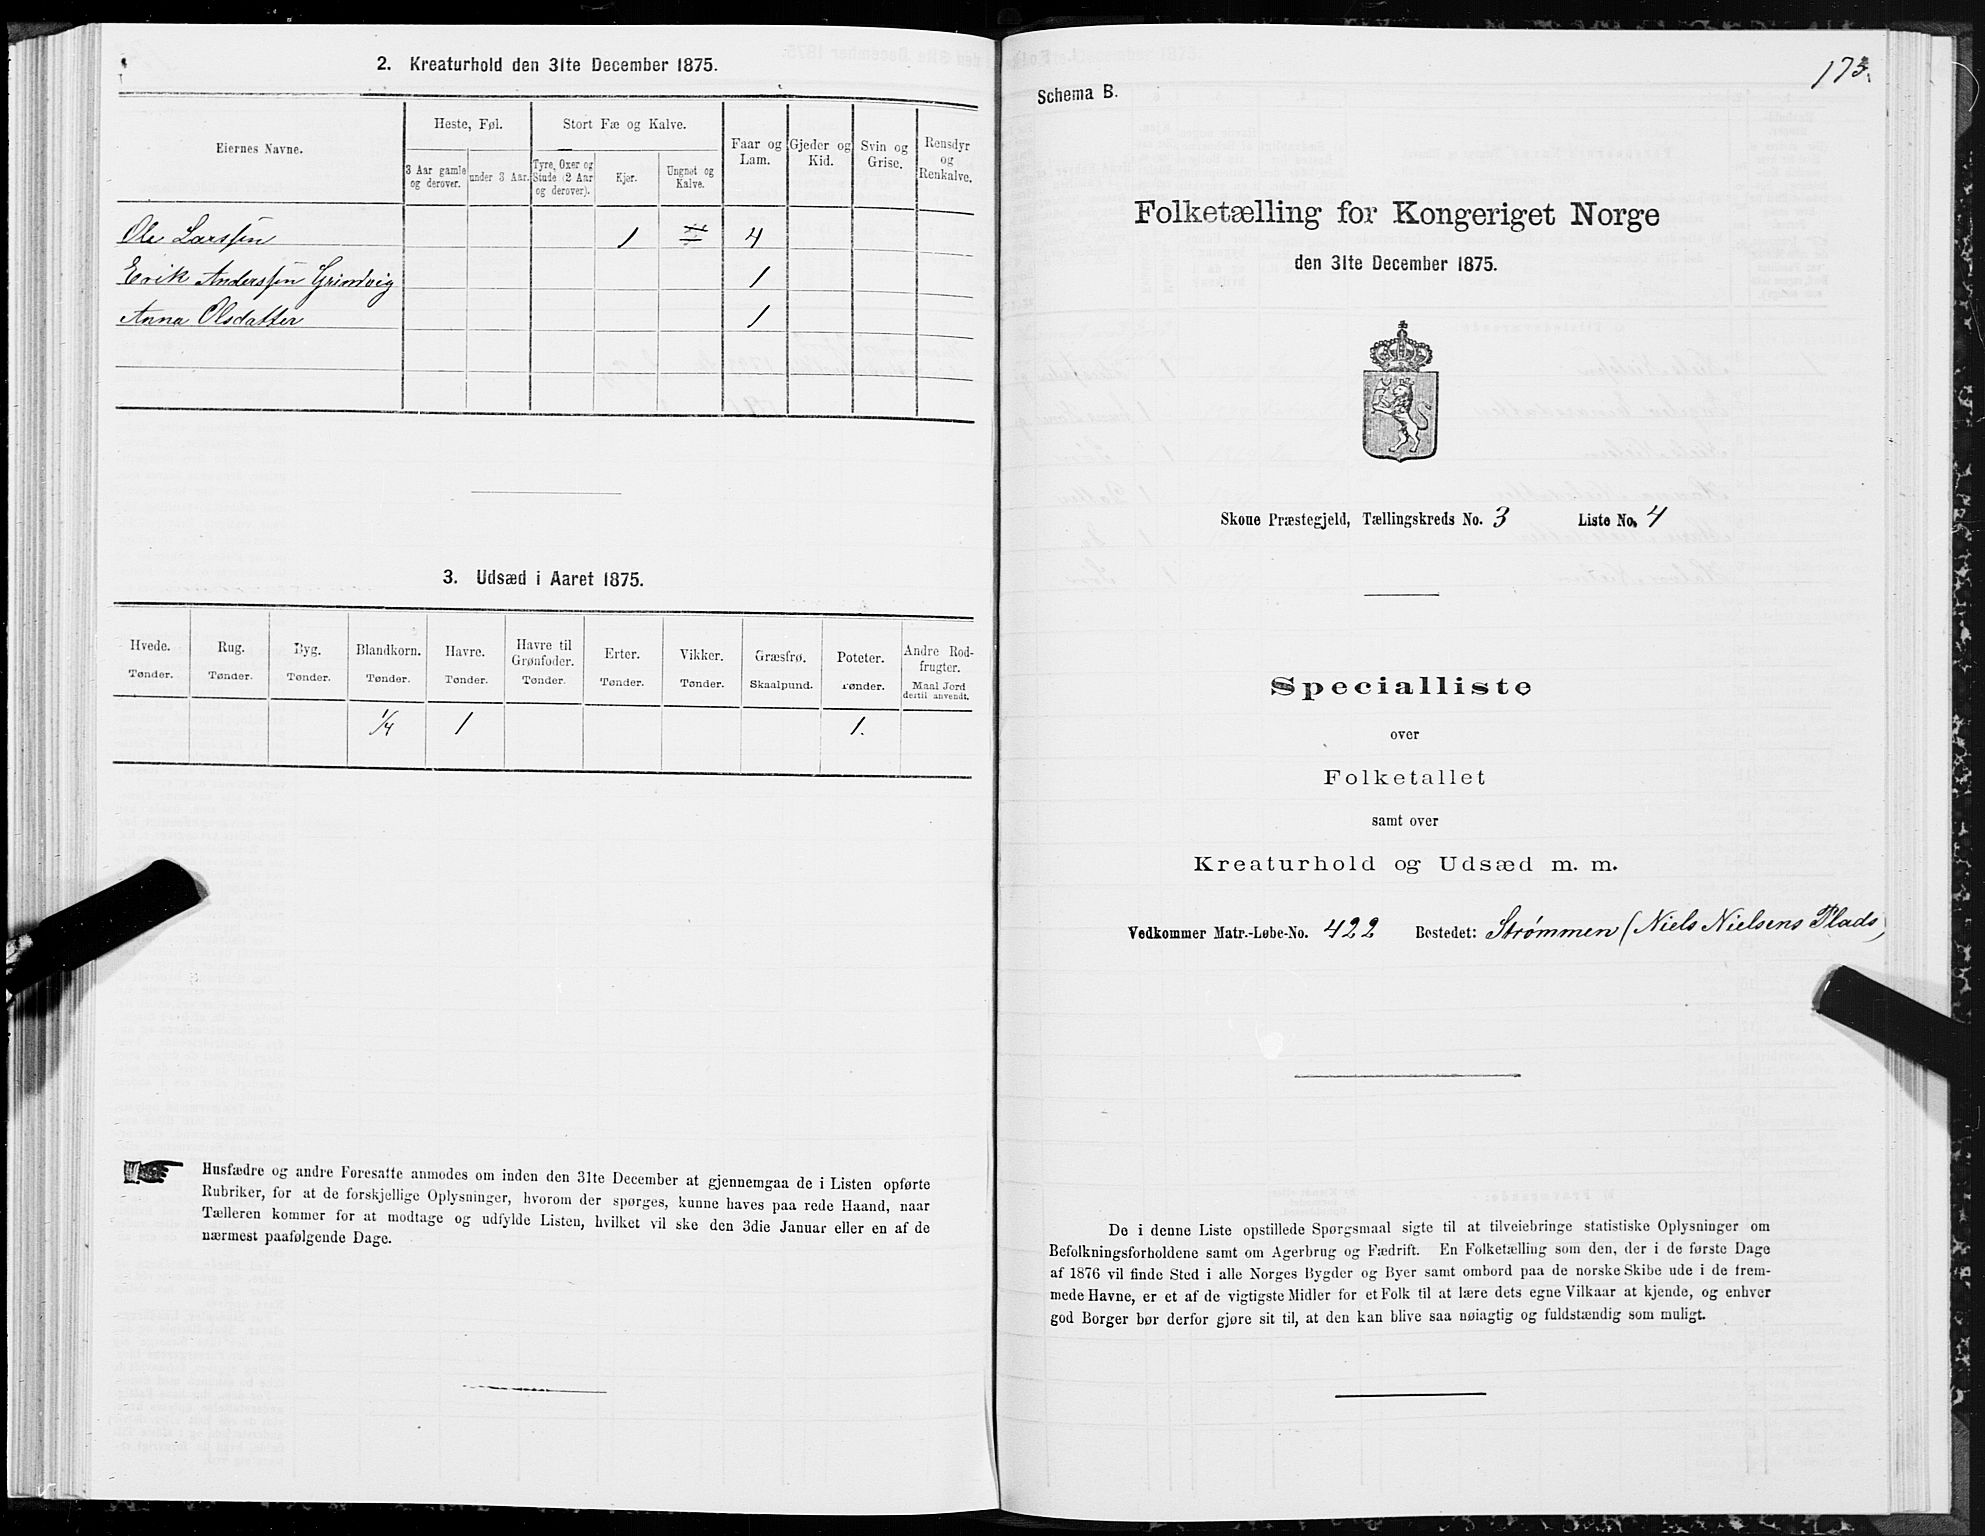 2. Kreaturhold den 31te December 1875.
Eiernes Navne.
Heste, Føl.
Stort Fæ og Kalve.
Faar og Lam.
Gjeder og Kid.
Svin og Grise.
Rensdyr og Renkalve.
3 Aar gamle og derover.
under 3 Aar.
Tyre, Oxer og Stude (2 Aar og derover).
Kjør.
Ungnøt og Kalve.
Ole Larssen 1 4
Erik Anderssen Grindvig 1
Anna Olsdatter 1
3. Udsæd i Aaret 1875.
Hvede. Rug. Byg. Blandkorn. Havre. Havre til Grønfoder. Erter. Vikker. Græsfrø. Poteter. Andre Rodfrugter.
Tønder. Tønder. Tønder. Tønder. Tønder. Tønder. Tønder. Tønder. Skaalpund. Tønder. Maal Jord dertil anvendt.
1/4 1 1.
Husfædre og andre Foresatte anmodes om inden den 31te December at gjennemgaa de i Listen opførte
Rubriker, for at de forskjellige Oplysninger, hvorom der spørges, kunne haves paa rede Haand, naar
Tælleren kommer for at modtage og udfylde Listen, hvilket vil ske den 3die Januar eller en af de
nærmest paafølgende Dage.
173.
Schema B.
Folketælling for Kongeriget Norge
den 31te December 1875.
Skoue Præstegjeld, Tællingskreds No. 3 Liste No. 4
Specialliste
over
Folketallet
samt over
Kreaturhold og Udsæd m. m.
Vedkommer Matr.-Løbe-No. 422 Bostedet: Strømmen (Niels Nielsens Plads)
De i denne Liste opstillede Spørgsmaal sigte til at tilveiebringe statistiske Oplysninger om
Befolkningsforholdene samt om Agerbrug og Fædrift. En Folketælling som den, der i de første Dage
af 1876 vil finde Sted i alle Norges Bygder og Byer samt ombord paa de norske Skibe ude i de frem-
mede Havne, er et af de vigtigste Midler for et Folk til at lære dets egne Vilkaar at kjende, og enhver
god Borger bør derfor gjøre sit til, at den kan blive saa nøiagtig og fuldstændig som muligt.